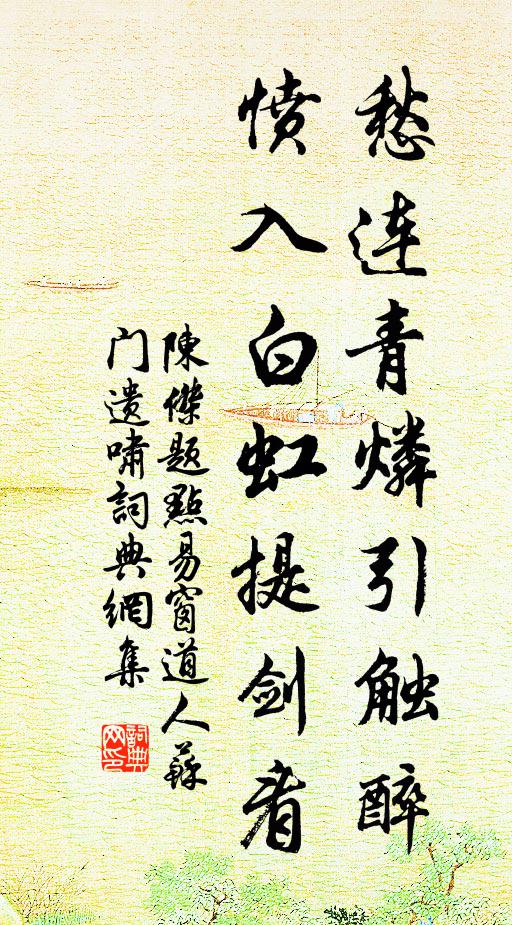 愁连青燐引触醉
憤入白虹提剑看
陳傑题點易窗道人蘇
门遺嘯詞典網集
詞典网印